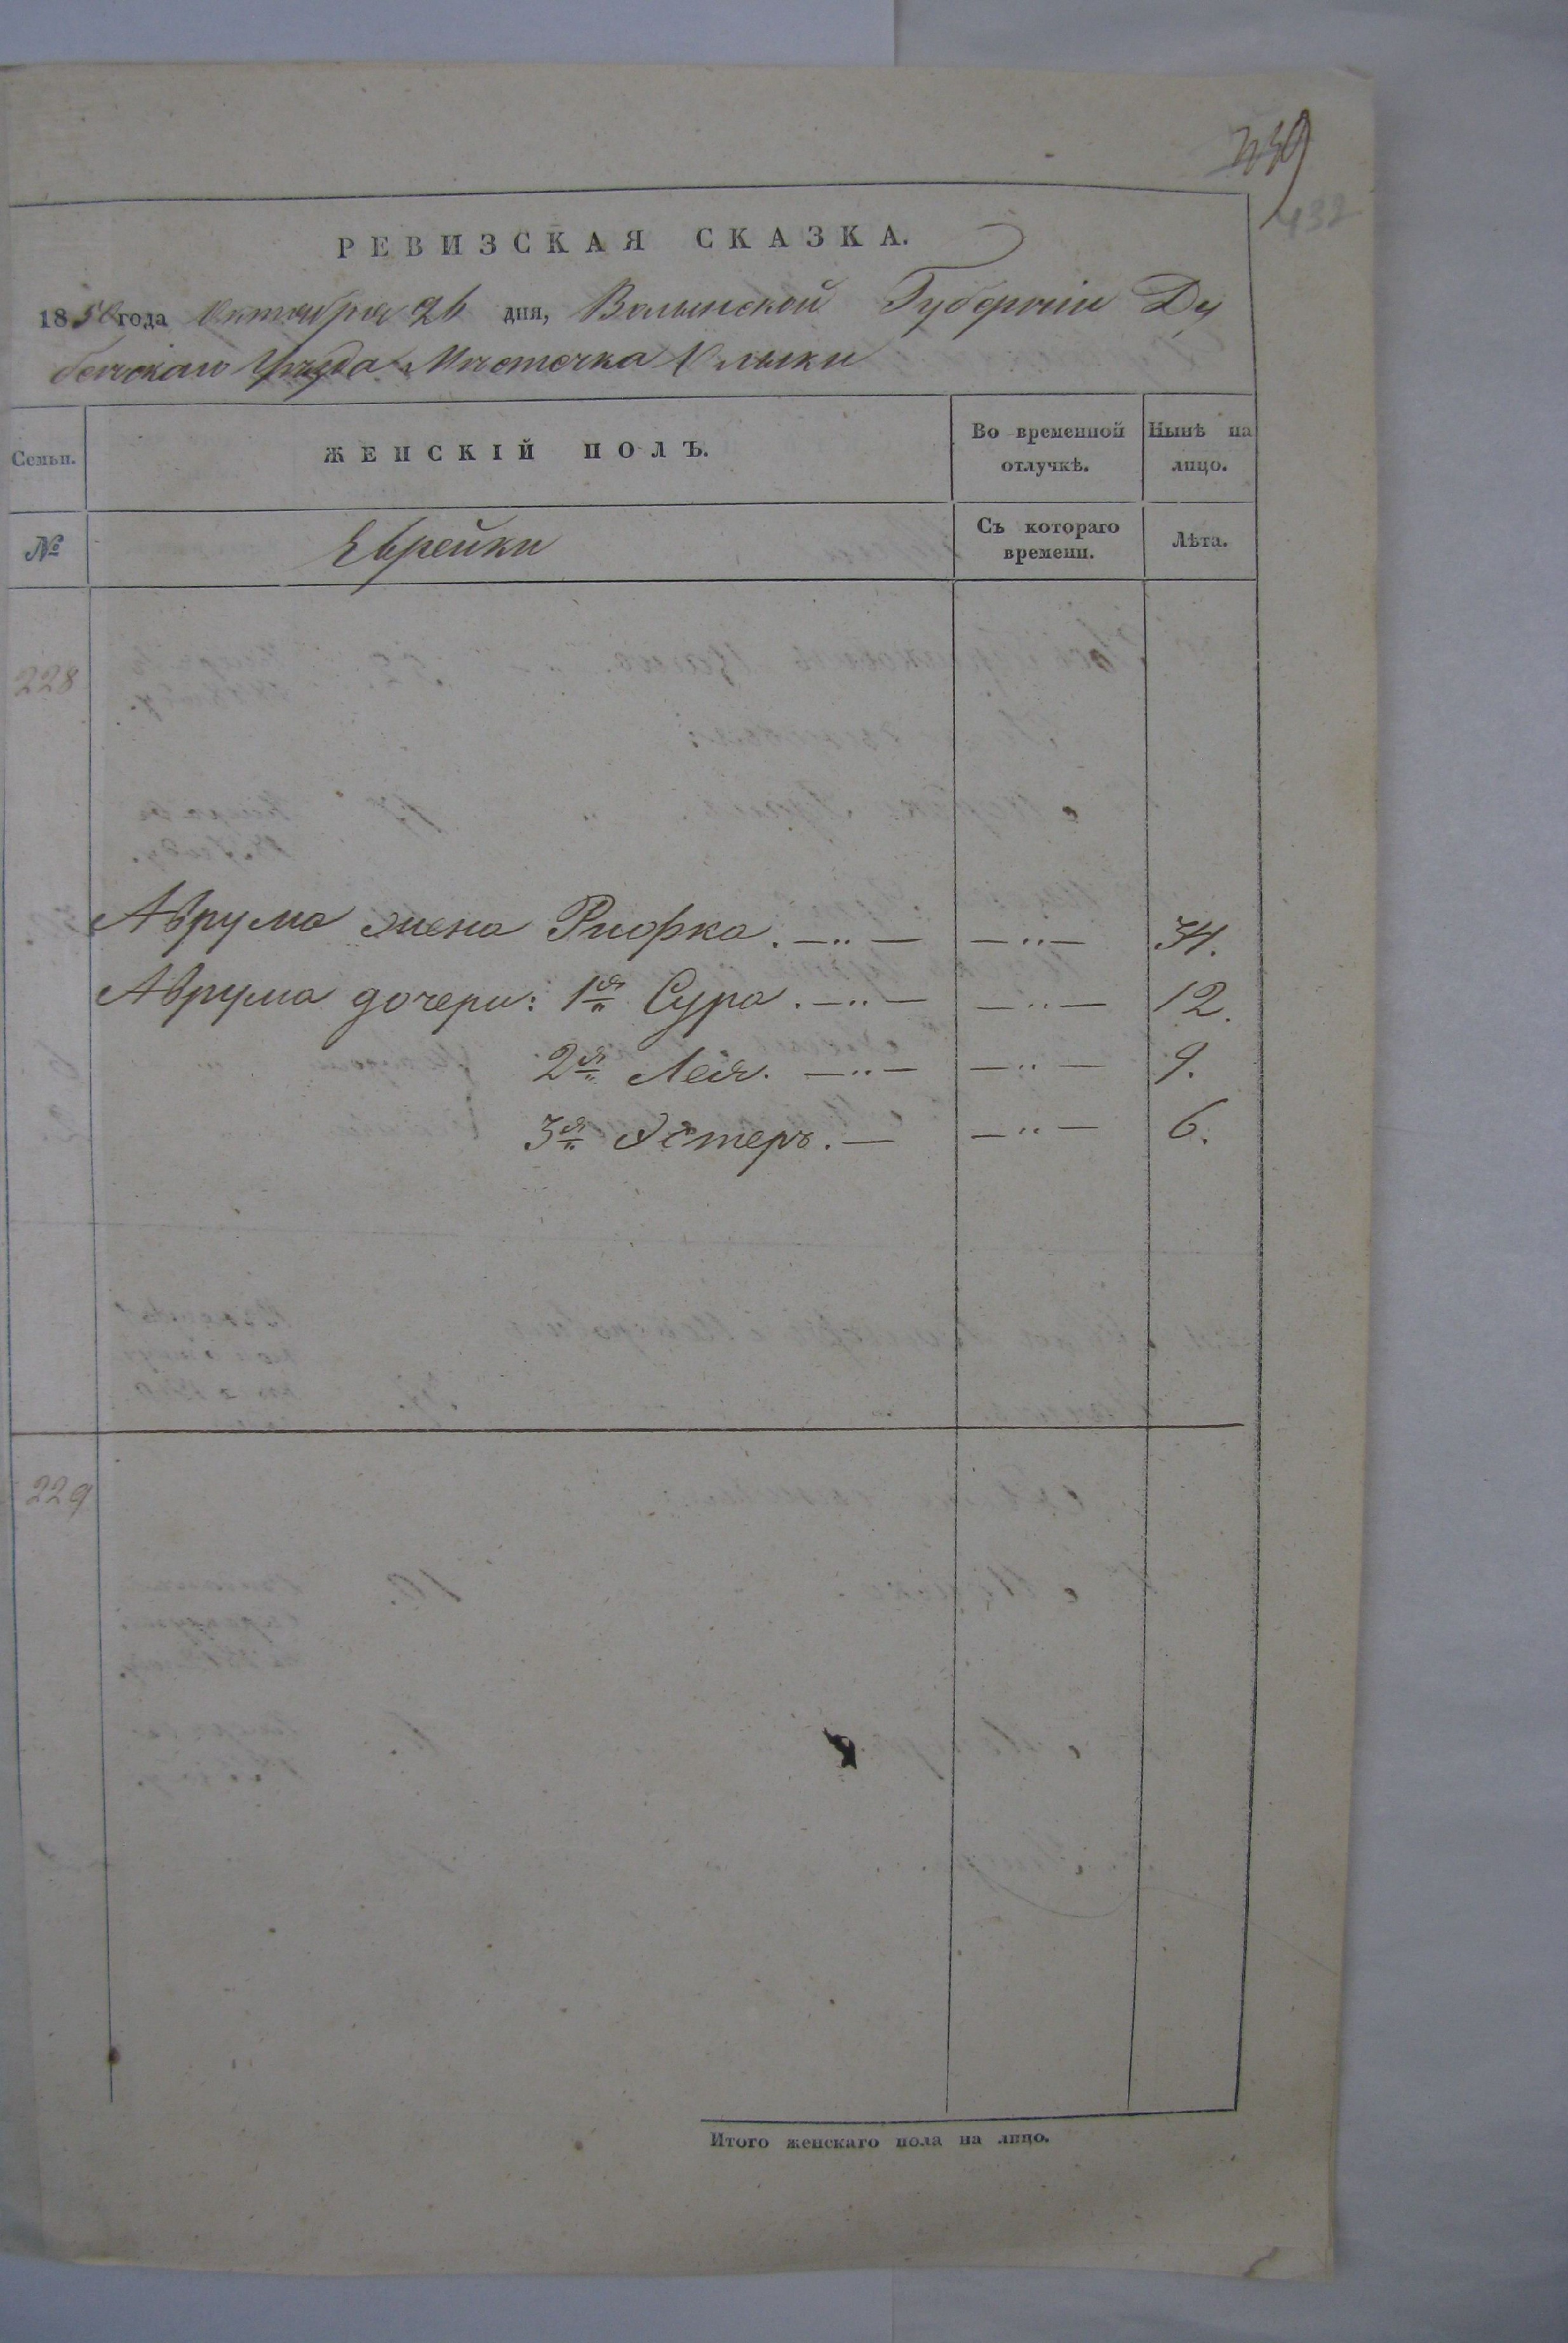 439
432
РЕВИЗСКАЯ СКАЗКА.
1850 года Октября 26 дня, Волынской Губерніи Ду
бенскаго Уѣзда Мѣстечка Олыки
Семьи.
ЖЕНСКІЙ ПОЛЪ.
Во временной отлучкѣ.
Нынѣ на лицо.
№
Еврейки
Съ котораго времени.
Лѣта.
228
Аврума жена Риофка. —„— —„— 34.
Аврума дочери: 1я Сура. —„— —„— 12.
2я Лея. —„— —„— 9.
3я Эстеръ. — —„— 6.
229
Итого женскаго пола на лицо.